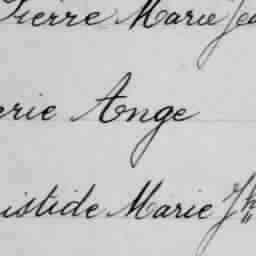 Pierre Marie Jea
erie Ange
istide Marie Jh